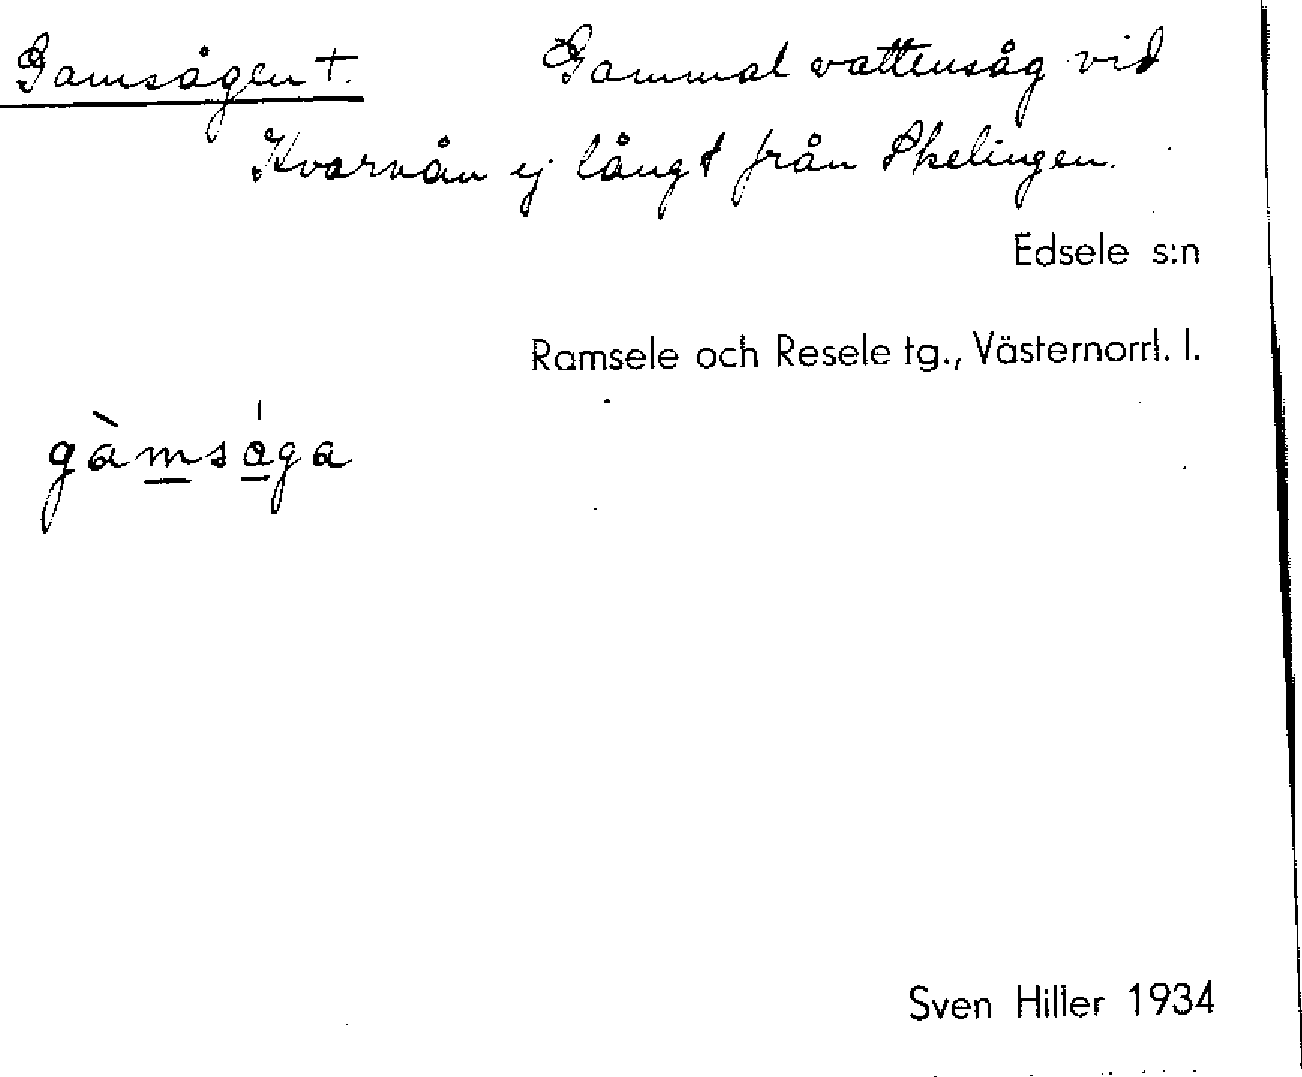 Gamsågen †. Gammal vattensåg vid
Kvarnån ej långt från Skelingen.
Edsele s:n
Ramsele och Resele tg., Västernorrl. l.
gàmsåga
Sven Hiller 1934